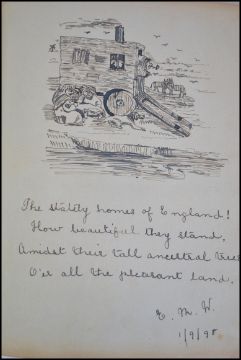 The stately homes of England!
How beautiful they stand,
Amidst their tall ancestral trees
O'er all the pleasant land.
E. M. W.
1/9/98